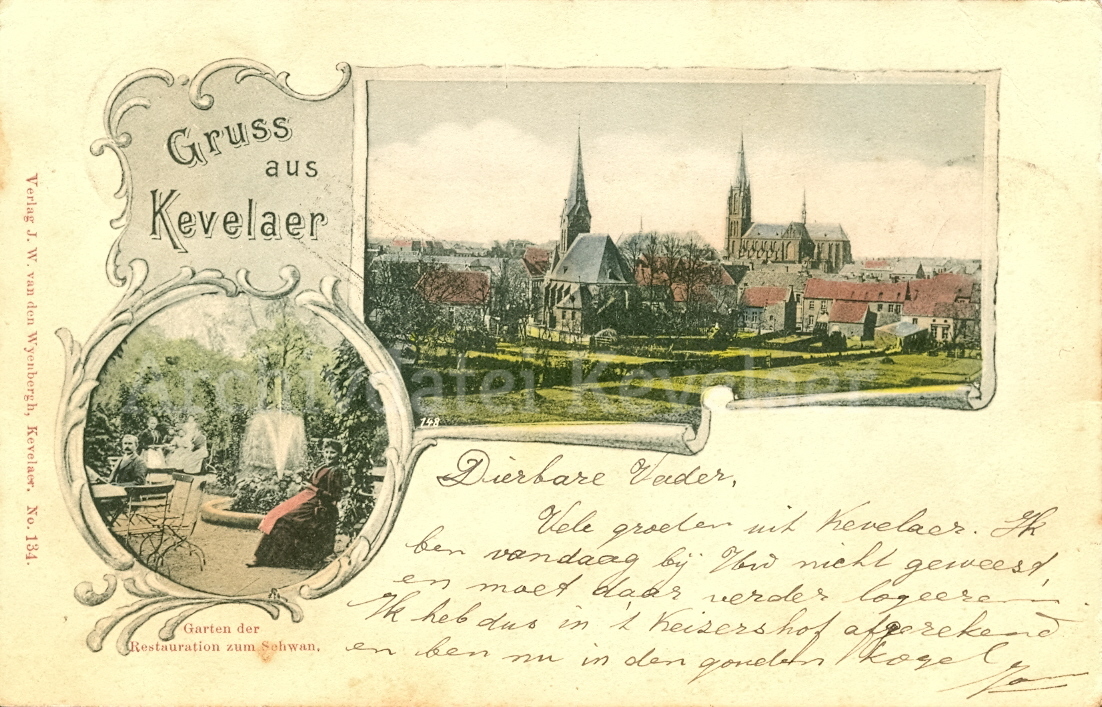 Gruss
aus
Kevelaer
Verlag J. W. van den Wyenbergh, Kevelaer. No. 134.
148
Archif Tafel Kevelaer
Garten der
Restauration zum Schwan.
Dierbare Vader,
Vele groeten uit Kevelaer. Ik
ben vandaag bij Uw nicht geweest,
en moet daar verder logeeren.
Ik heb dus in 't Keizershof afgerekend
en ben nu in den gouden Kogel